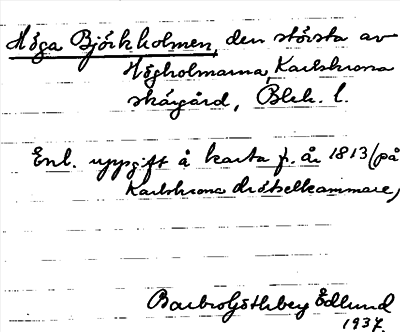 Höga Björkholmen, den största av
Högholmarna, Karlskrona
skärgård, Blek. l.
Enl. uppgift å karta f. år 1813 (på
Karlskrona drätselkammare)
Barbro Götheberg Edlund
1937.